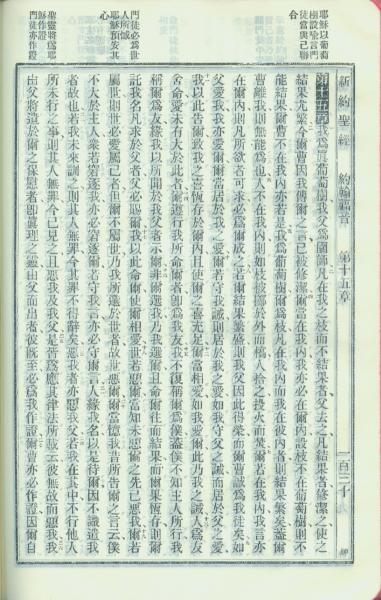 耶穌以葡萄
樹設喻言門
徒當與己聯
合
門徒必爲世
人所惡
耶穌預安其
心
聖靈將爲耶
穌作證
門徒亦作證
新約聖經 約翰福音 第十五章 一百三十
第十五章我爲眞葡萄樹我父爲園師凡在我之枝而不結果者父去之凡結果者修潔之使之
結果尤繁今爾曹因我傳爾之言已被修潔爾當在我內我亦必在爾內設枝不在葡萄樹則不
能結果爾曹不在我內亦若是我爲葡萄樹爾爲枝凡在我內而我在彼內者則結果繁矣蓋爾
曹離我則無能爲也人不在我內則如枝被擲於外而槁人拾之投火而焚爾若在我內我言亦
在爾內則凡所欲者可求必爲爾成之若爾結果繁盛則我父因此得榮而爾曹誠我徒矣如
父愛我我亦愛爾爾當居於我之愛爾若守我誡則居於我之愛如我守父之誡而居於父之愛
我以此告爾致我之喜恆存於爾內且使爾之喜充足爾當相愛如我愛爾此乃我之誡人爲友
舍命愛未有大於此者爾遵行我所命爾者卽爲我友我不復稱爾爲僕蓋僕不知主人所行我
稱爾爲友緣我以所聞於我父者示爾非爾選我乃我選爾且命爾往而結果而爾果恆存則爾
託我名凡求於父者父必賜爾我以此命爾使爾相愛世若惡爾當知未惡爾之先已惡我爾若
屬世則世必愛屬己者但爾不屬世乃我所選於世者故世惡爾爾當憶我昔所告爾之言云僕
不大於主人衆若窘逐我亦必窘逐爾若守我言亦必守爾言人緣我名以是待爾因不識遣我
者故也若我未來訓之則其人無罪今其罪不得辭矣惡我者亦惡我父若我在其中不行他人
所未行之事則其人無罪今已見之且惡我及我父是皆爲應其律法所載云彼無故而惡我我
由父將遣於爾之保惠者卽眞理之靈由父而出者彼旣至必爲我作證爾曹亦必作證因爾自